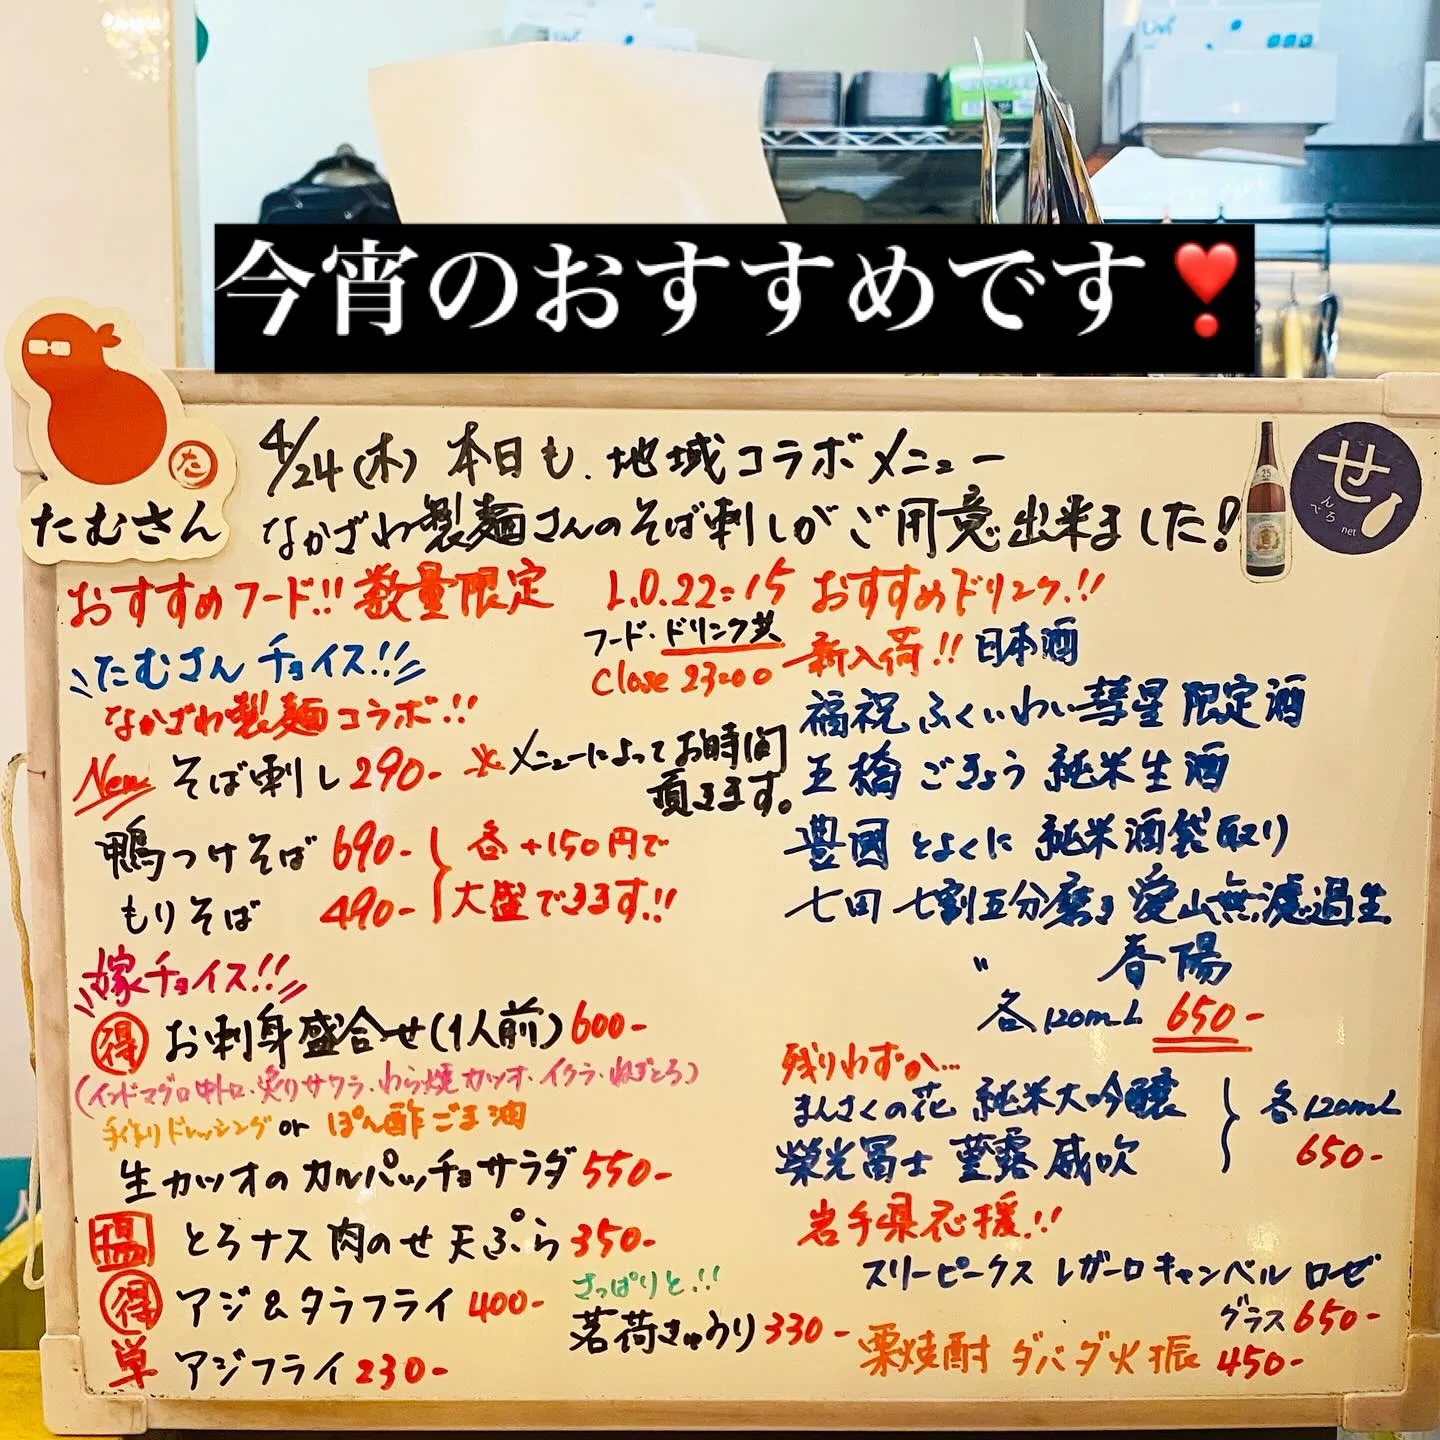 今宵のおすすめです❣
た
たむさん
せ
んでろ
net
4/24(木) 本日も、地域コラボメニュー
なかざわ製麺さんのそば刺しがご用意出来ました!
おすすめフード!! 数量限定
L.O.22=15
フード・ドリンク共
Close 23=00
たむさんチョイス!!
なかざわ製麺コラボ!!
New そば刺し 290-
※メニューによってお時間
頂きます。
鴨つけそば 690-
もりそば 490-
各+150円で
大盛できます!!
嫁チョイス!!
得 お刺身盛合せ(1人前) 600-
(インドマグロ中トロ・炙りサワラ・わら焼カツオ・イクラ・ねぎとろ)
手作りドレッシング or ぽん酢ごま油
生カツオのカルパッチョサラダ 550-
温 とろナス肉のせ天ぷら 350-
得 アジ&タラフライ 400-
単 アジフライ 230-
さっぱりと!!
茗荷きゅうり 330-
おすすめドリンク!!
新入荷!! 日本酒
福祝 ふくいわい 彗星 限定酒
五橋 ごきょう 純米生酒
豊國 とよくに 純米酒袋取り
七田 七割五分磨き 愛山無濾過生
〃 春陽
各120mL 650-
残りわずか…
まんさくの花 純米大吟醸
榮光冨士 菫露威吹
各120mL
650-
岩手県応援!!
スリーピークス レガーロ キャンベル ロゼ
グラス 650-
栗焼酎 ダバダ火振 450-